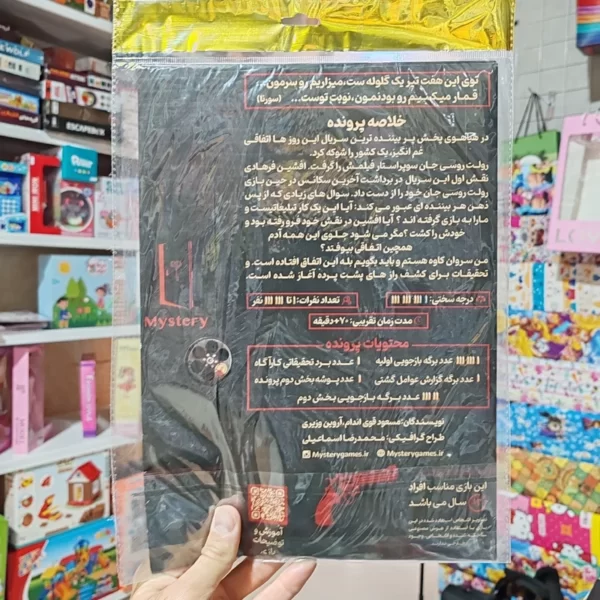 توی این هفت تیر یک گلوله ست، میزاریم رو سرمون...
قمار میکنیم رو بودنمون، نوبت توست... (سورنا)
خلاصه پرونده
در هیاهوی پخش پر بیننده ترین سریال این روز ها اتفاقی
غم انگیز، یک کشور را شوکه کرد.
رولت روسی جان سوپراستار فیلمش را گرفت. افشین فرهادی
نقش اول این سریال در برداشت آخرین سکانس در حین بازی
رولت روسی جان خود را از دست داد. سوال های زیادی که از پس
ذهن هر بیننده ای عبور می کند: آیا این یک کار تبلیغاتیست و
ما را به بازی گرفته اند ؟ آیا افشین در نقش خود فرو رفته بود و
خودش را کشت ؟مگر می شود جلوی این همه آدم
همچین اتفاقی بیوفتد؟
من سروان کاوه هستم و باید بگویم بله این اتفاق افتاده است. و
تحقیقات برای کشف راز های پشت پرده آغاز شده است.
Mystery
درجه سختی:
تعداد نفرات: تا نفر
مدت زمان تقریبی: ۷۰+دقیقه
محتویات پرونده
عدد برگه بازجویی اولیه
عدد برد تحقیقاتی کارآگاه
عدد برگه گزارش عوامل گشتی
عدد پوشه بخش دوم پرونده
عدد برگه بازجویی بخش دوم
نویسندگان: مسعود قوی اندام، آروین وزیری
طراح گرافیکی: محمدرضا اسماعیلی
Mysterygames.ir Mysterygames.ir
این بازی مناسب افراد
سال می باشد
آموزش و
توضیحات
بازی
ESCAPE